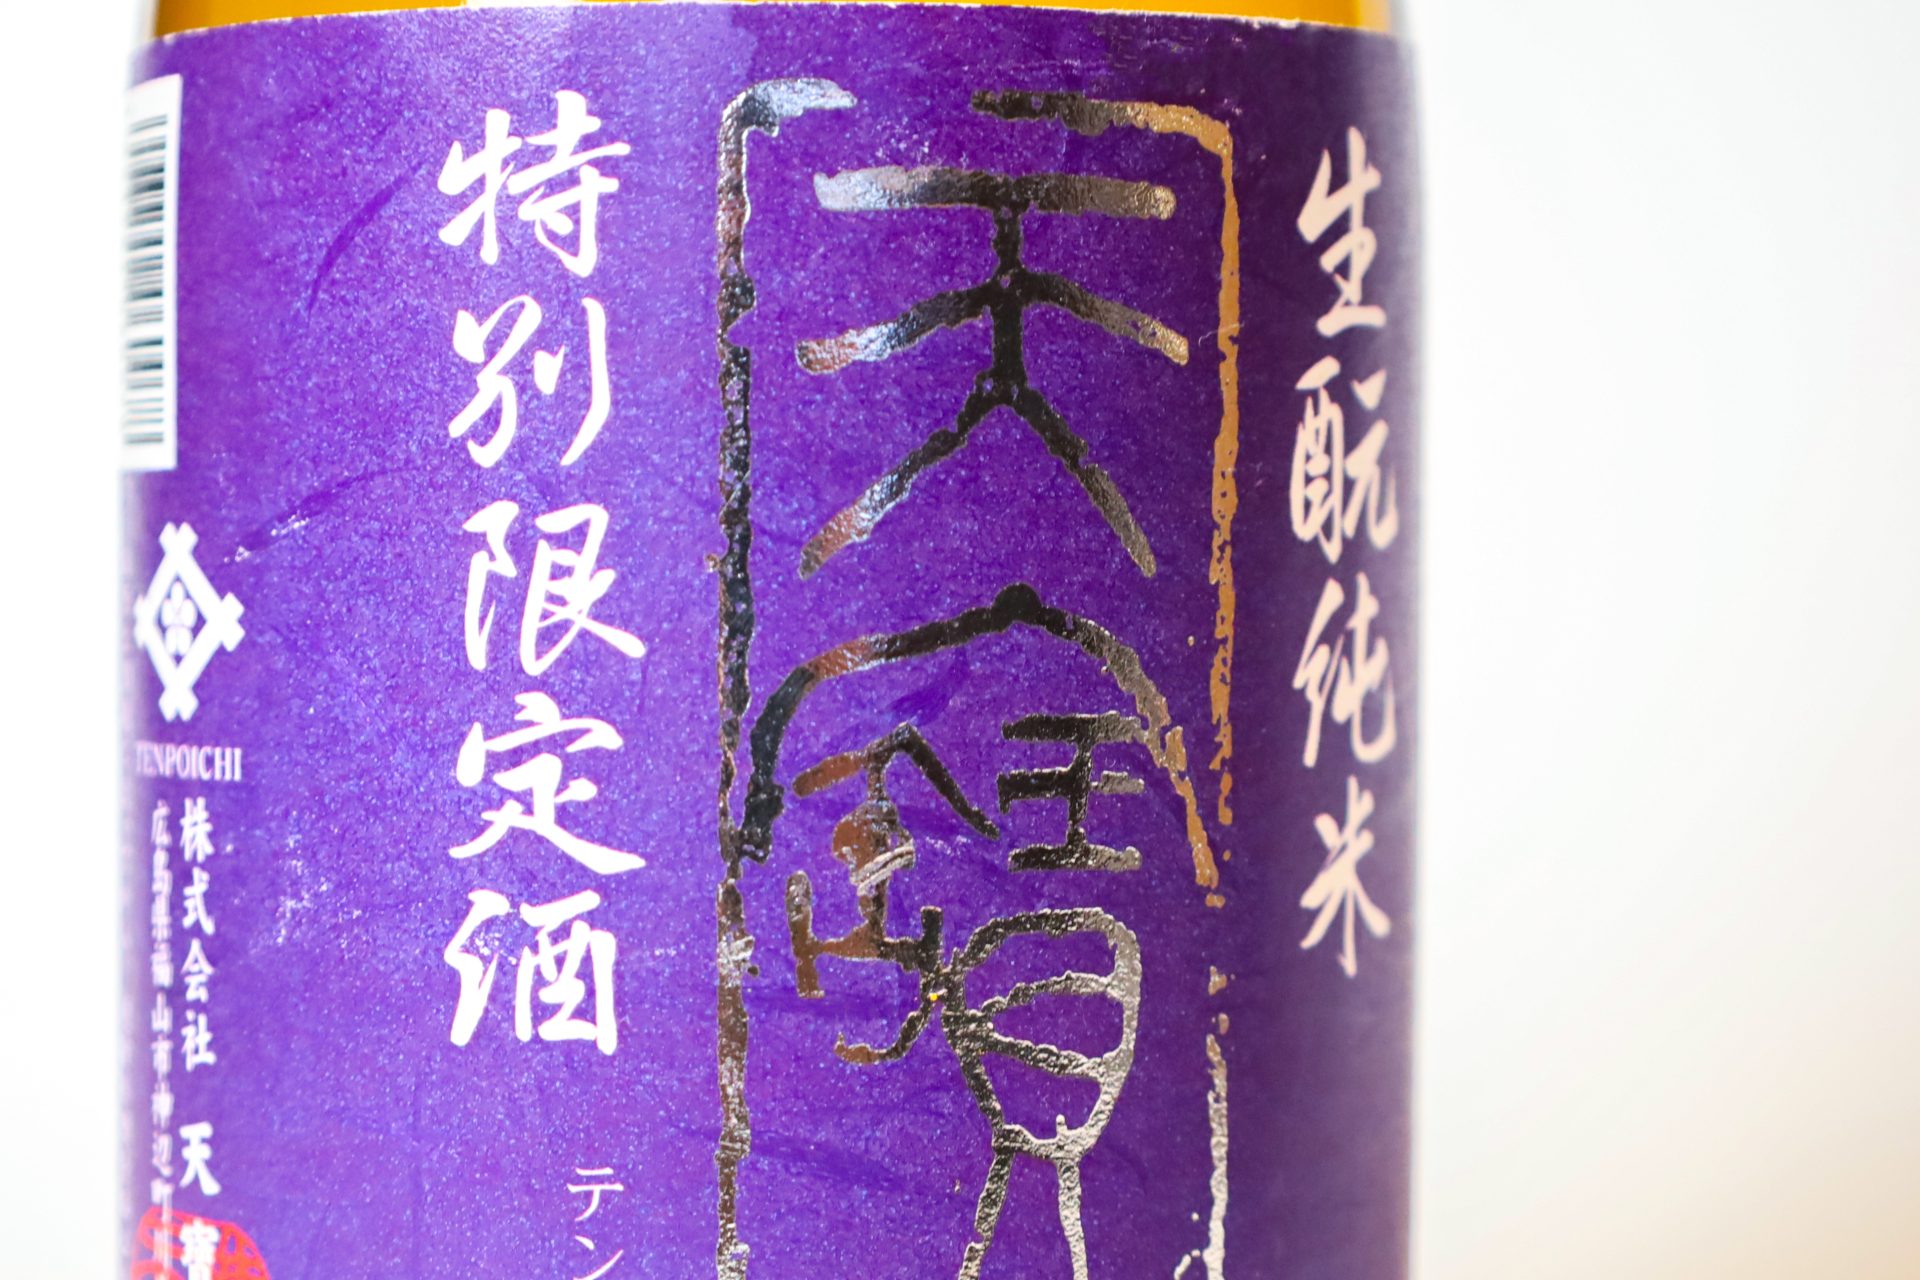 生酛純米
天寳
特別限定酒
テン
TENPOICHI
株式会社 天寶
広島県福山市神辺町